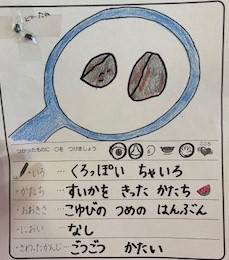 つかったものに ○を つけましょう
こころ
いろ … くろっぽい ちゃいろ
かたち … すいかを きった かたち
おおきさ … こゆびの つめの はんぶん
におい … なし
さわったかんじ … ごつごつ かたい